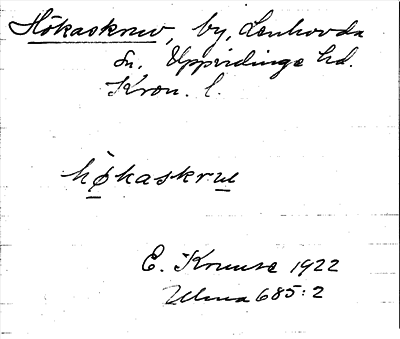 Hökaskruv, by, Lenhovda
sn. Uppvidinge hd.
Kron. l.
høkaskrul
E. Kruuse 1922
Ulma 685:2